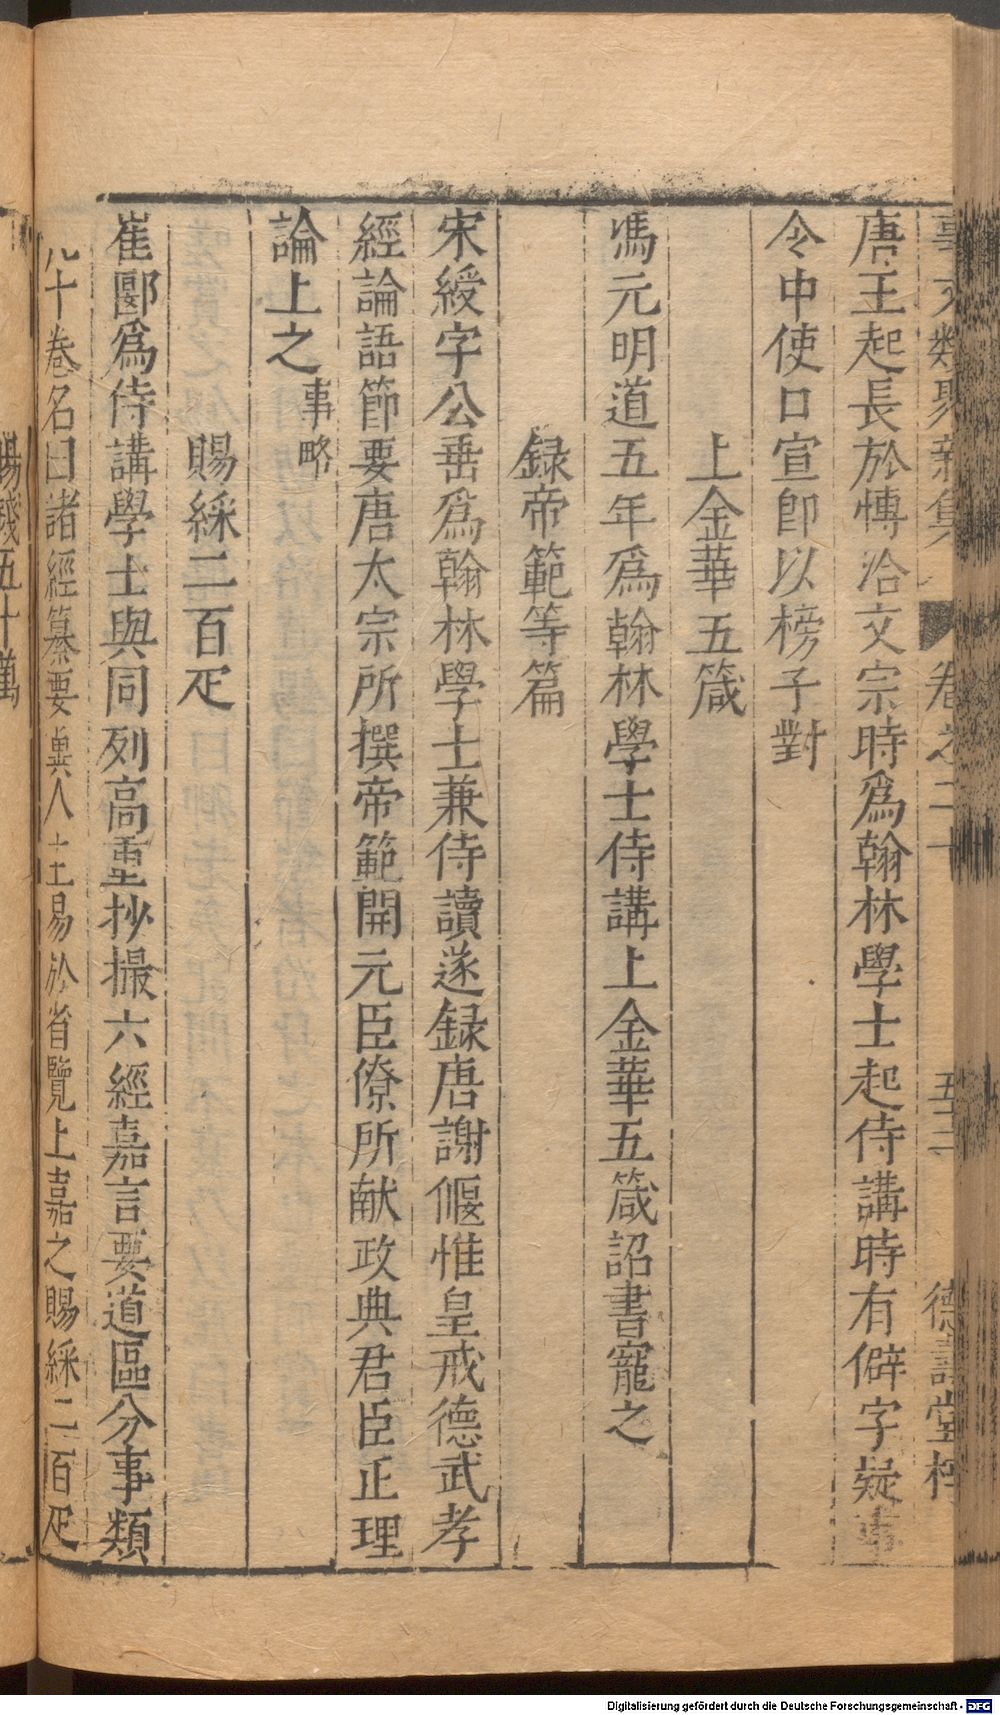 事文類聚新集 卷之二十 五三 德壽堂梓
唐王起長於愽洽文宗時爲翰林學士起侍講時有僻字疑事
令中使口宣卽以榜子對
上金華五箴
馮元明道五年爲翰林學士侍講上金華五箴詔書寵之
録帝範等篇
宋綬字公垂爲翰林學士兼侍讀遂録唐謝偃惟皇戒德武孝
經論語節要唐太宗所撰帝範開元臣僚所献政典君臣正理
論上之事略
賜綵二百疋
崔郾爲侍講學士與同列高重抄撮六經嘉言要道區分事類
凡十卷名曰諸經纂要兾人主易於省覽上嘉之賜綵二百疋
賜錢五十萬
Digitalisierung gefördert durch die Deutsche Forschungsgemeinschaft - DFG